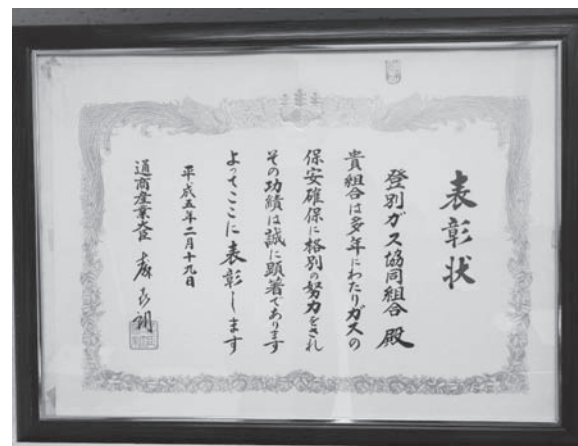 表彰状
登別ガス協同組合 殿
貴組合は多年にわたりガスの
保安確保に格別の努力をされ
その功績は誠に顕著であります
よってここに表彰します
平成五年二月十九日
通商産業大臣 森喜朗